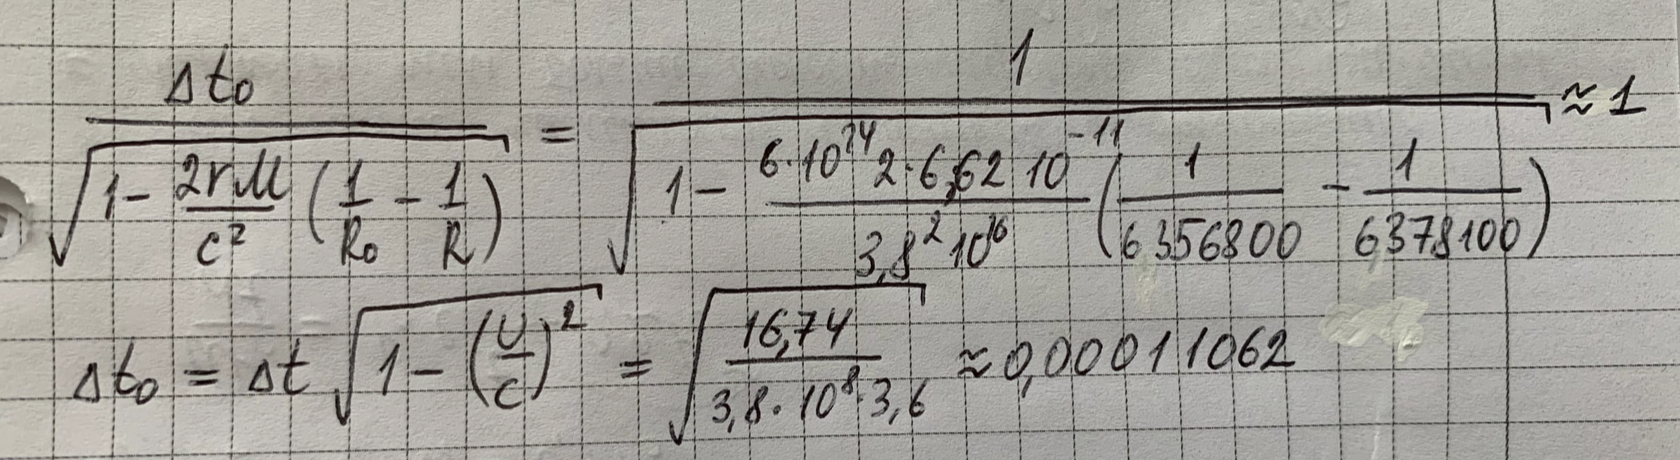 Δt₀ / √(1 - 2rM/c² (1/R₀ - 1/R)) = 1 / √(1 - 6·10²⁴ 2·6,62 10⁻¹¹ / 3,8² 10¹⁶ (1/6356800 - 1/6378100)) ≈ 1
Δt₀ = Δt √(1 - (U/c)²) = √(16,74 / 3,8·10⁸·3,6) ≈ 0,00011062